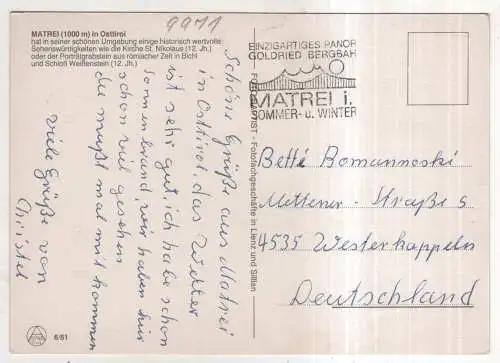 9971
MATREI (1000 m) in Osttirol
hat in seiner schönen Umgebung einige historisch wertvolle
Sehenswürdigkeiten wie die Kirche St. Nikolaus (12. Jh.)
oder der Porträtgrabstein aus römischer Zeit in Bichl
und Schloß Weißenstein (12. Jh.)
Schöne Grüße aus Matrei
in Osttirol, das Wetter
ist sehr gut, ich habe schon
Sonnenbrand, wir haben hier
schon viel gesehen
du mußt mal mit kommen
viele Grüße von
Christel
EINZIGARTIGES PANOR
GOLDRIED BERGBAH
MATREI i.
SOMMER- u. WINTER
- Fotofachgeschäfte in Lienz und Sillian
Betté Romannoski
Mettener-Straße 5
4535 Westerkappeln
Deutschland
6/61